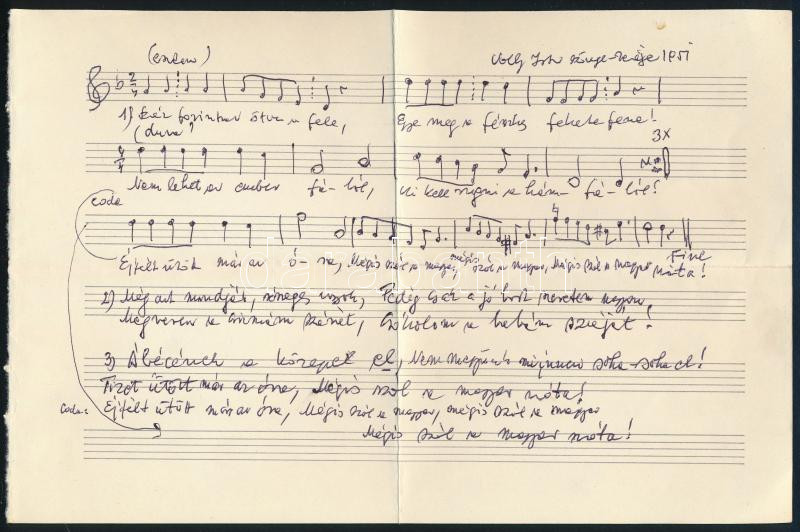 Volly Istv 1951
1) Száz forintnak ötven a fele,
Egye meg a fészkes fekete fene!
3x
Nem lehet az ember fá-ból,
Ki kell rúgni a hám-fá-ból!
coda
Éjfélt ütött már az ó-ra, Mégis szól a magyar, mégis szól a magyar, Mégis szól a magyar nóta!
Fine
2) Még azt mondják, részeges vagyok, Pedig csak a jó bort szeretem nagyon
Megverem a csizmám szárát, Csókolom a babám száját!
3) Ábécének a közepe el, Nem megyünk mi innen soha-soha el!
Tizet ütött már az óra, Mégis szól a magyar nóta!
Coda: Éjfélt ütött már az óra, Mégis szól a magyar, mégis szól a magyar
Mégis szól a magyar nóta!
darabanth